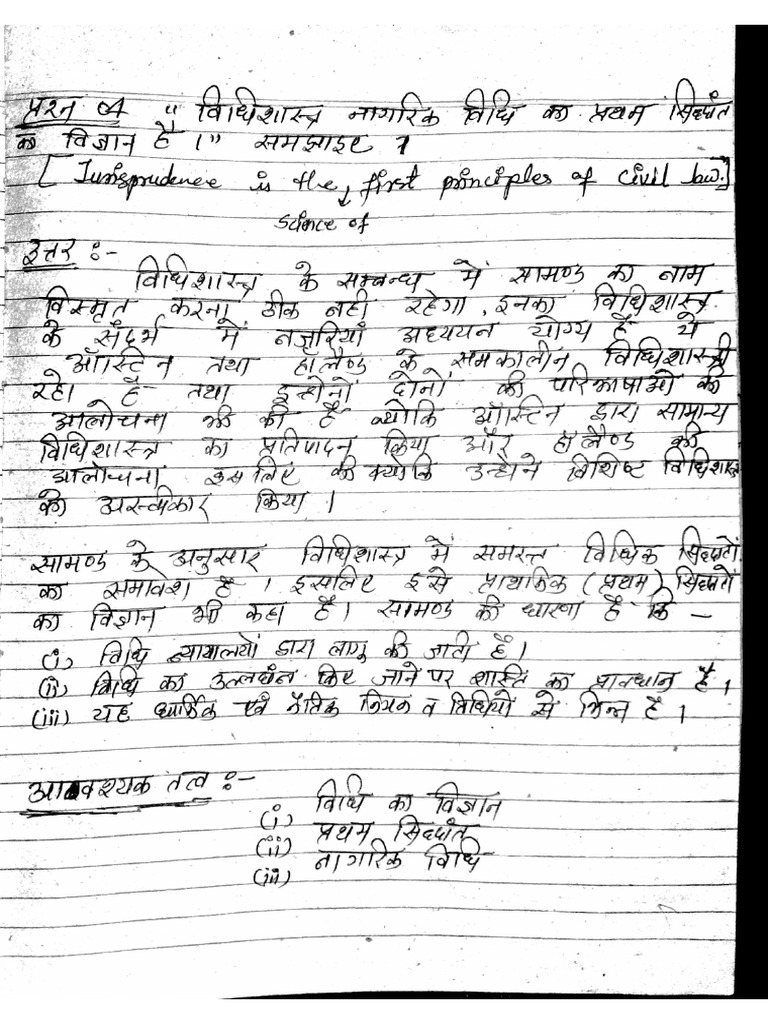 प्रश्न 04 " विधिशास्त्र नागरिक विधि का प्रथम सिद्धांत
का विज्ञान है।" समझाइए ?
[ Jurisprudence is the first principles of civil law.]
science of
उत्तर :-
विधिशास्त्र के सम्बन्ध में सामण्ड का नाम
विस्मृत करना ठीक नही रहेगा, इनका विधिशास्त्र
के संदर्भ में नजरियां अध्ययन योग्य है ये
ऑस्टिन तथा हॉलैण्ड के समकालीन विधिशास्त्री
रहे। है तथा इन्होनों दोनों की परिभाषाओं की
आलोचना भी की है क्योकि ऑस्टिन द्वारा सामान्य
विधिशास्त्र का प्रतिपादन किया और हॉलैण्ड की
आलोचना इसलिए की क्योकि उन्होने विशिष्ट विधिशास्त्र
को अस्वीकार किया।
सामण्ड के अनुसार विधिशास्त्र में समस्त विधिक सिद्धांतों
का समावेश है। इसलिए इसे प्राथमिक (प्रथम) सिद्धांतों
का विज्ञान भी कहा है। सामण्ड की धारणा है कि –
(i) विधि न्यायालयों द्वारा लागू की जाती है।
(ii) विधि का उल्लघंन किए जाने पर शास्ति का प्रावधान है।
(iii) यह धार्मिक एवं नैतिक नियम व विधियों से भिन्न है।
आवश्यक तत्व :-
(i) विधि का विज्ञान
(ii) प्रथम सिद्धांत
(iii) नागरिक विधि